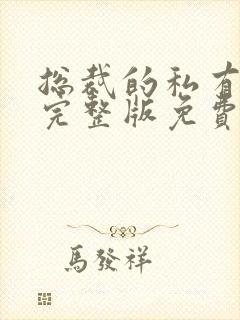 总裁的私有
完整版免費
馬發祥